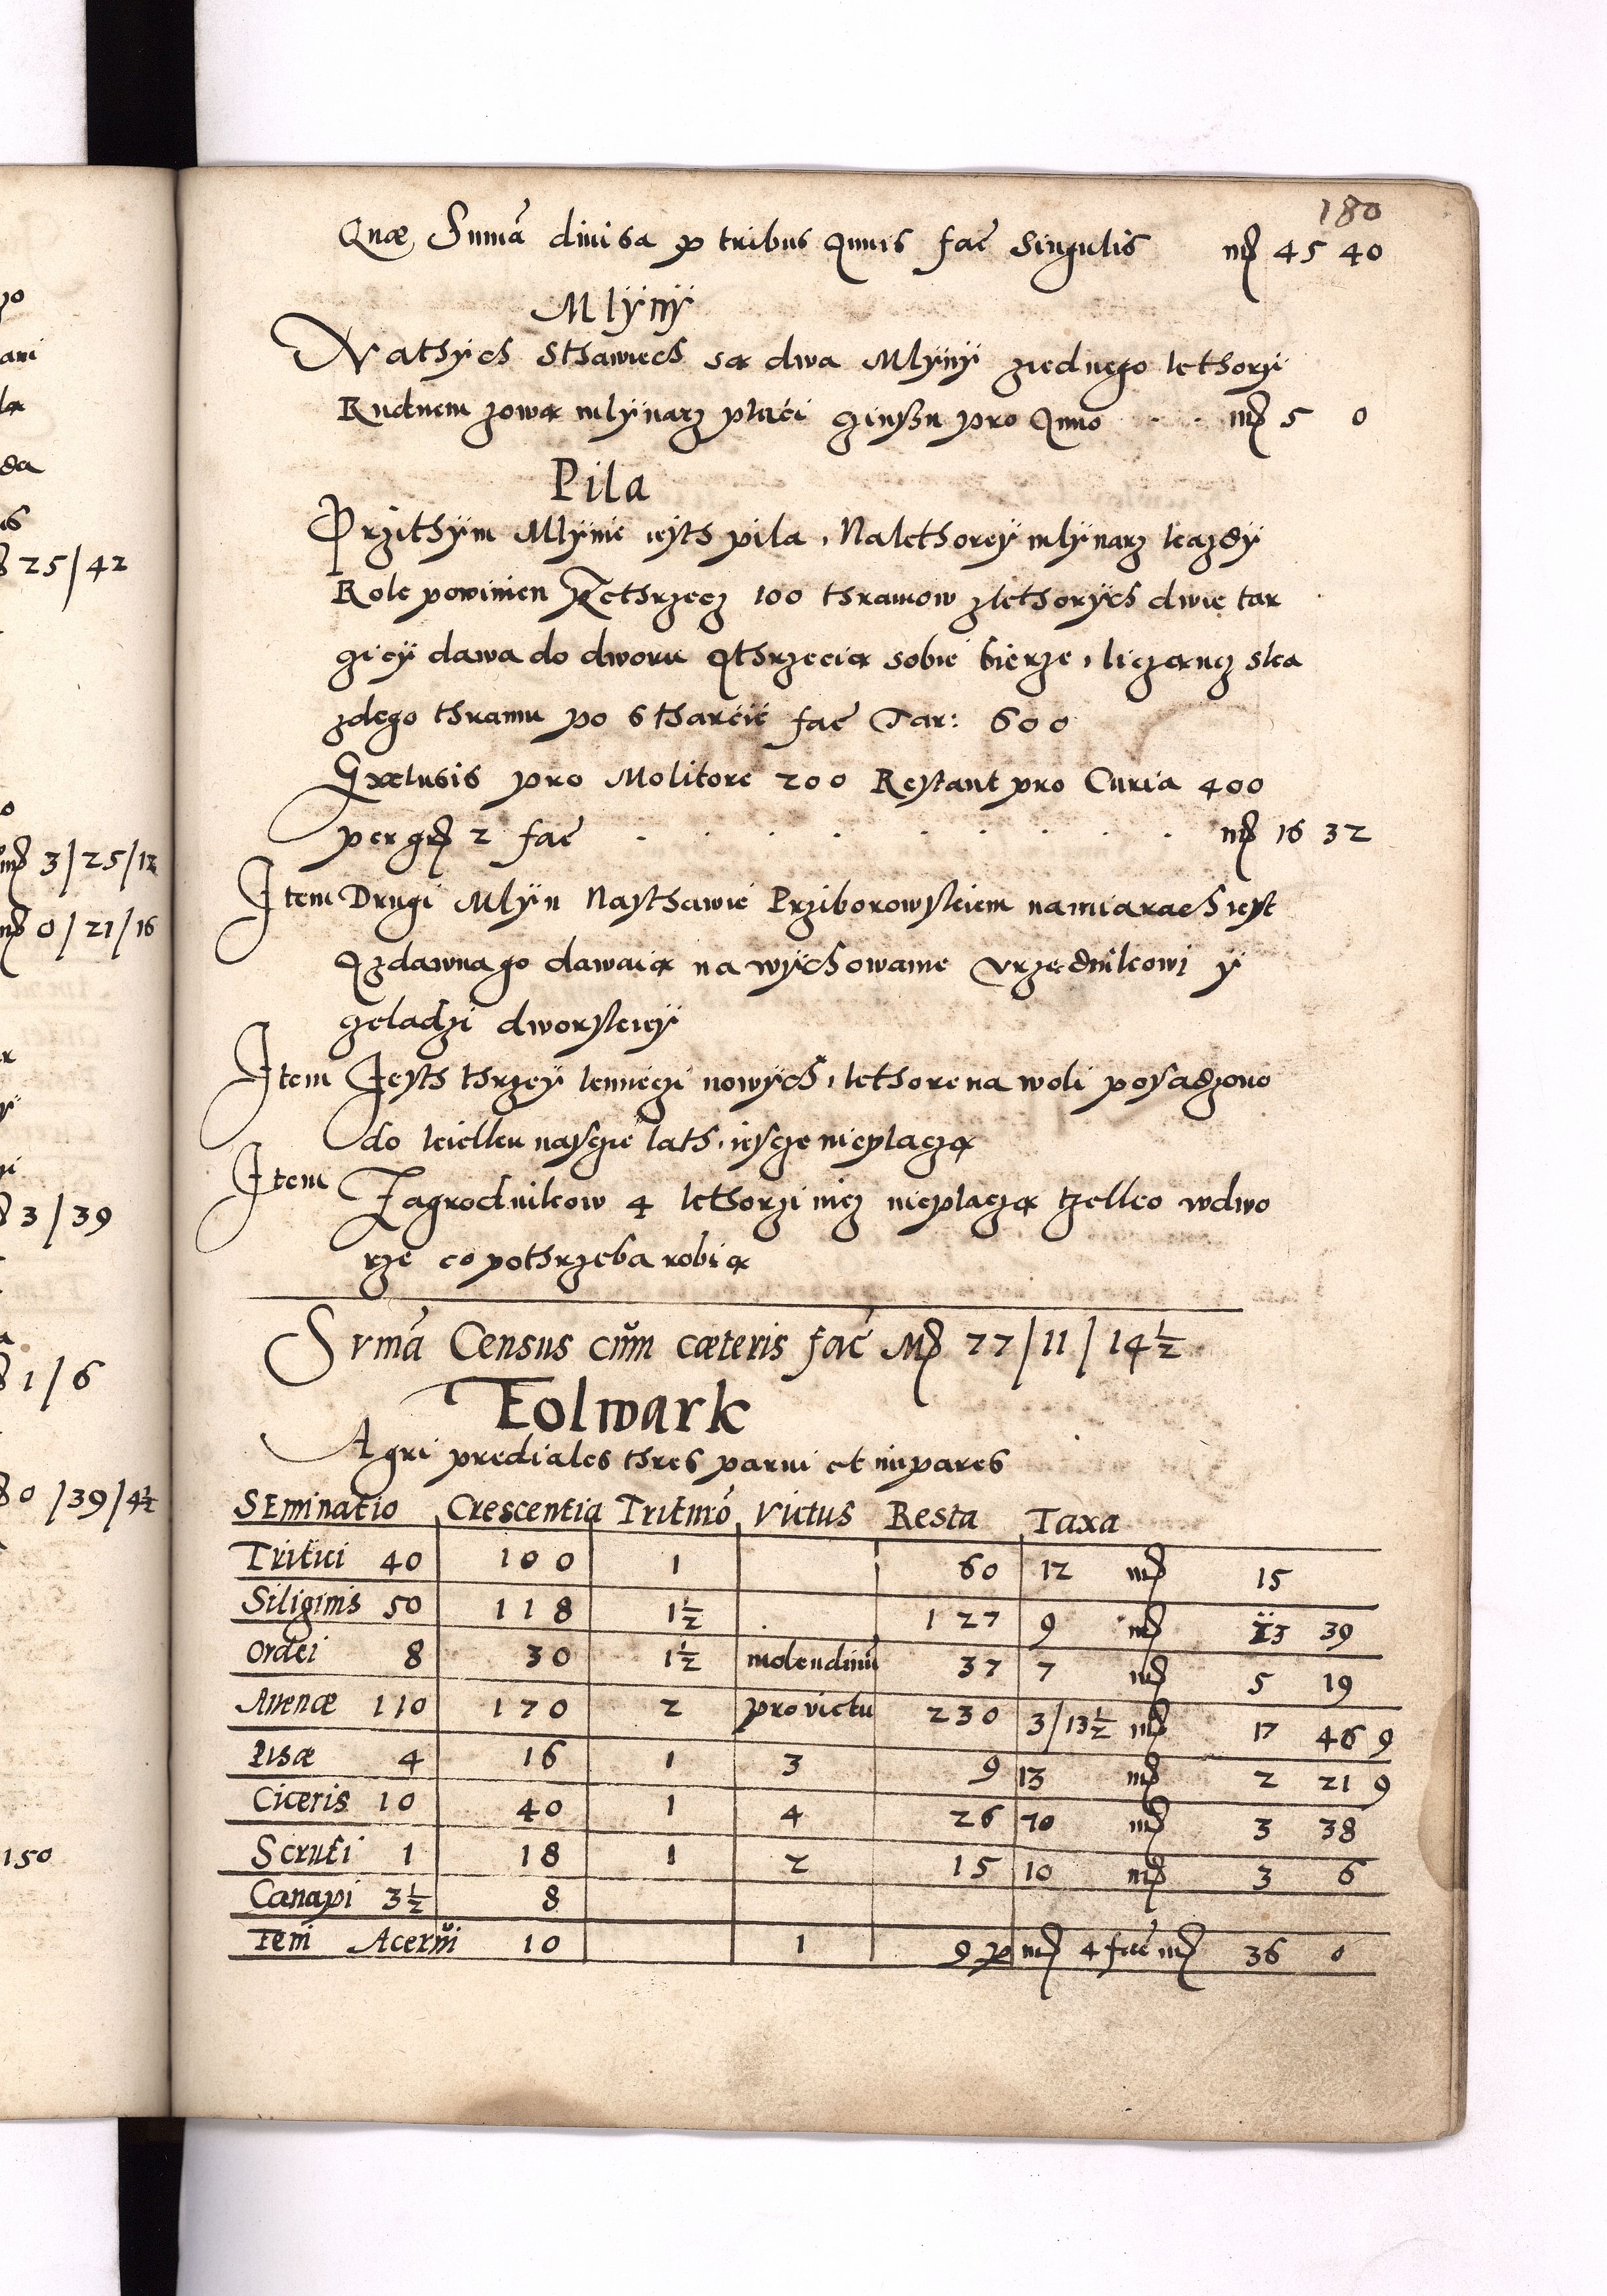 180
Quæ Sumã diuisa p tribus Annis fac̃ Singulis mꝛ 45 40
Mlÿnÿ
Nathÿch Sthawiech są dwa Mlÿnÿ ziednego kthorÿ
Rudnem zową mlÿnarz płaći czinssu pro Anno mꝛ 5 0
Pila
Przithÿm Mlÿnie iesth pila, Nakthoreÿ mlÿnarz kazdÿ
Role powinien zethrzecz 100 thramow zkthorÿch dwie tar
czicÿ dawa do dworu Athrzecią sobie bierze, liczącz ska
zdego thramu po 6 tharćić fac̃ Tar: 600
Exclusis pro Molitore 200 Restant pro Curia 400
per gꝛ 2 fac̃ . . . . . . . . mꝛ 16 32
Item Drugi Mlÿn Nasthawie Przÿborowskiem namiarach iest
Azdawna go dawaią na wÿchowanie vrzednikowi ÿ
czeladzi dworskieÿ
Item Iesth thrzeÿ kmieczi nowÿch, kthore na woli posadzono
do kielku nasczie lath, iescze nieplaczą
Item Zagrodnikow 4 kthorzi nicz nieplaczą tzelko wdwo
rze co pothrzeba robią
Sumã Census cum cæteris fac̃ Mꝛ 77/11/14½
Folwark
Agri prediales thres parui et impares
Seminatio Crescentia Trituro Victus Resta Taxa
Tritici 40 100 1 60 12 mꝛ 15
Siliginis 50 118 1½ 127 9 mꝛ 23 39
Ordei 8 30 1½ molendinũ 37 7 mꝛ 5 19
Auenæ 110 170 2 pro victu 230 3/13½ mꝛ 17 46 9
Pisæ 4 16 1 3 9 13 mꝛ 2 21 9
Ciceris 10 40 1 4 26 70 mꝛ 3 38
Scruti 1 18 1 2 15 10 mꝛ 3 6
Canapi 3½ 8
Feni Acerũi 10 1 9 p mꝛ 4 fac̃ mꝛ 36 0
25/42
mꝛ 3/25/12
mꝛ 0/21/16
3/39
1/6
0/39/4½
150